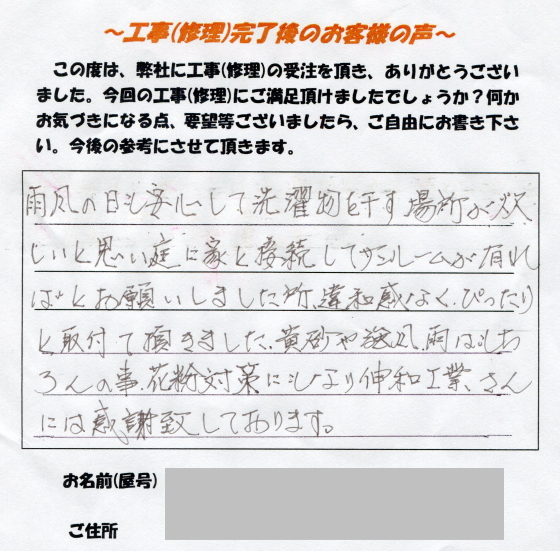 ～工事(修理)完了後のお客様の声～
この度は、弊社に工事(修理)の受注を頂き、ありがとうござい
ました。今回の工事(修理)にご満足頂けましたでしょうか？何か
お気づきになる点、要望等ございましたら、ご自由にお書き下さ
い。今後の参考にさせて頂きます。
雨風の日も安心して洗濯物を干す場所が欲
しいと思い庭に家と接続してサンルームが有れ
ばとお願いしました所、違和感なく、ぴったり
と取付て頂きました。黄砂や強風、雨はもち
ろんの事、花粉対策にもなり伸和工業、さん
には感謝致しております。
お名前(屋号)
ご住所